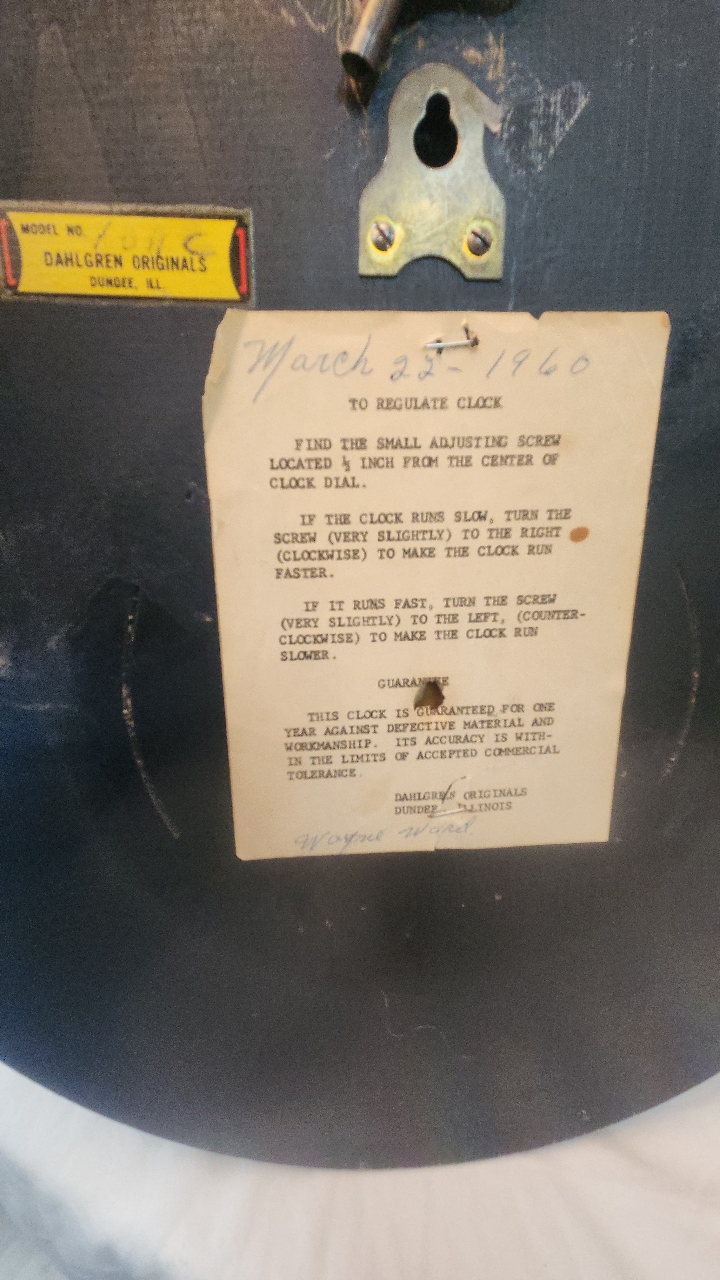 MODEL NO.
DAHLGREN ORIGINALS
DUNDEE, ILL.
March 22- 1960
TO REGULATE CLOCK
FIND THE SMALL ADJUSTING SCREW
LOCATED ½ INCH FROM THE CENTER OF
CLOCK DIAL.
IF THE CLOCK RUNS SLOW, TURN THE
SCREW (VERY SLIGHTLY) TO THE RIGHT
(CLOCKWISE) TO MAKE THE CLOCK RUN
FASTER.
IF IT RUNS FAST, TURN THE SCREW
(VERY SLIGHTLY) TO THE LEFT, (COUNTER-
CLOCKWISE) TO MAKE THE CLOCK RUN
SLOWER.
GUARANTEE
THIS CLOCK IS GUARANTEED FOR ONE
YEAR AGAINST DEFECTIVE MATERIAL AND
WORKMANSHIP. ITS ACCURACY IS WITH-
IN THE LIMITS OF ACCEPTED COMMERCIAL
TOLERANCE.
DAHLGREN ORIGINALS
DUNDEE, ILLINOIS
Wayne Ward